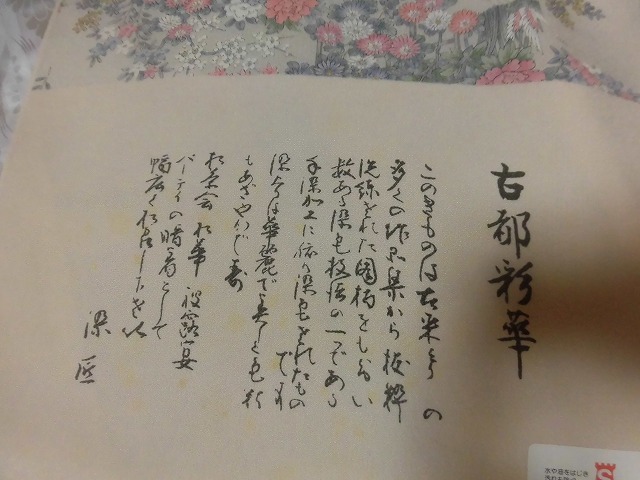 古都彩華
このきものは古来より の
多くの作品集から抜粋
洗練された図柄をもちい
数ある染色技法の一つである
手染加工に依り染色されたもの です
染今は華麗で美しく色彩
もあざやかで
お茶会 お華 披露宴
パーティの晴着として
幅広く
染匠
水や油をはじき